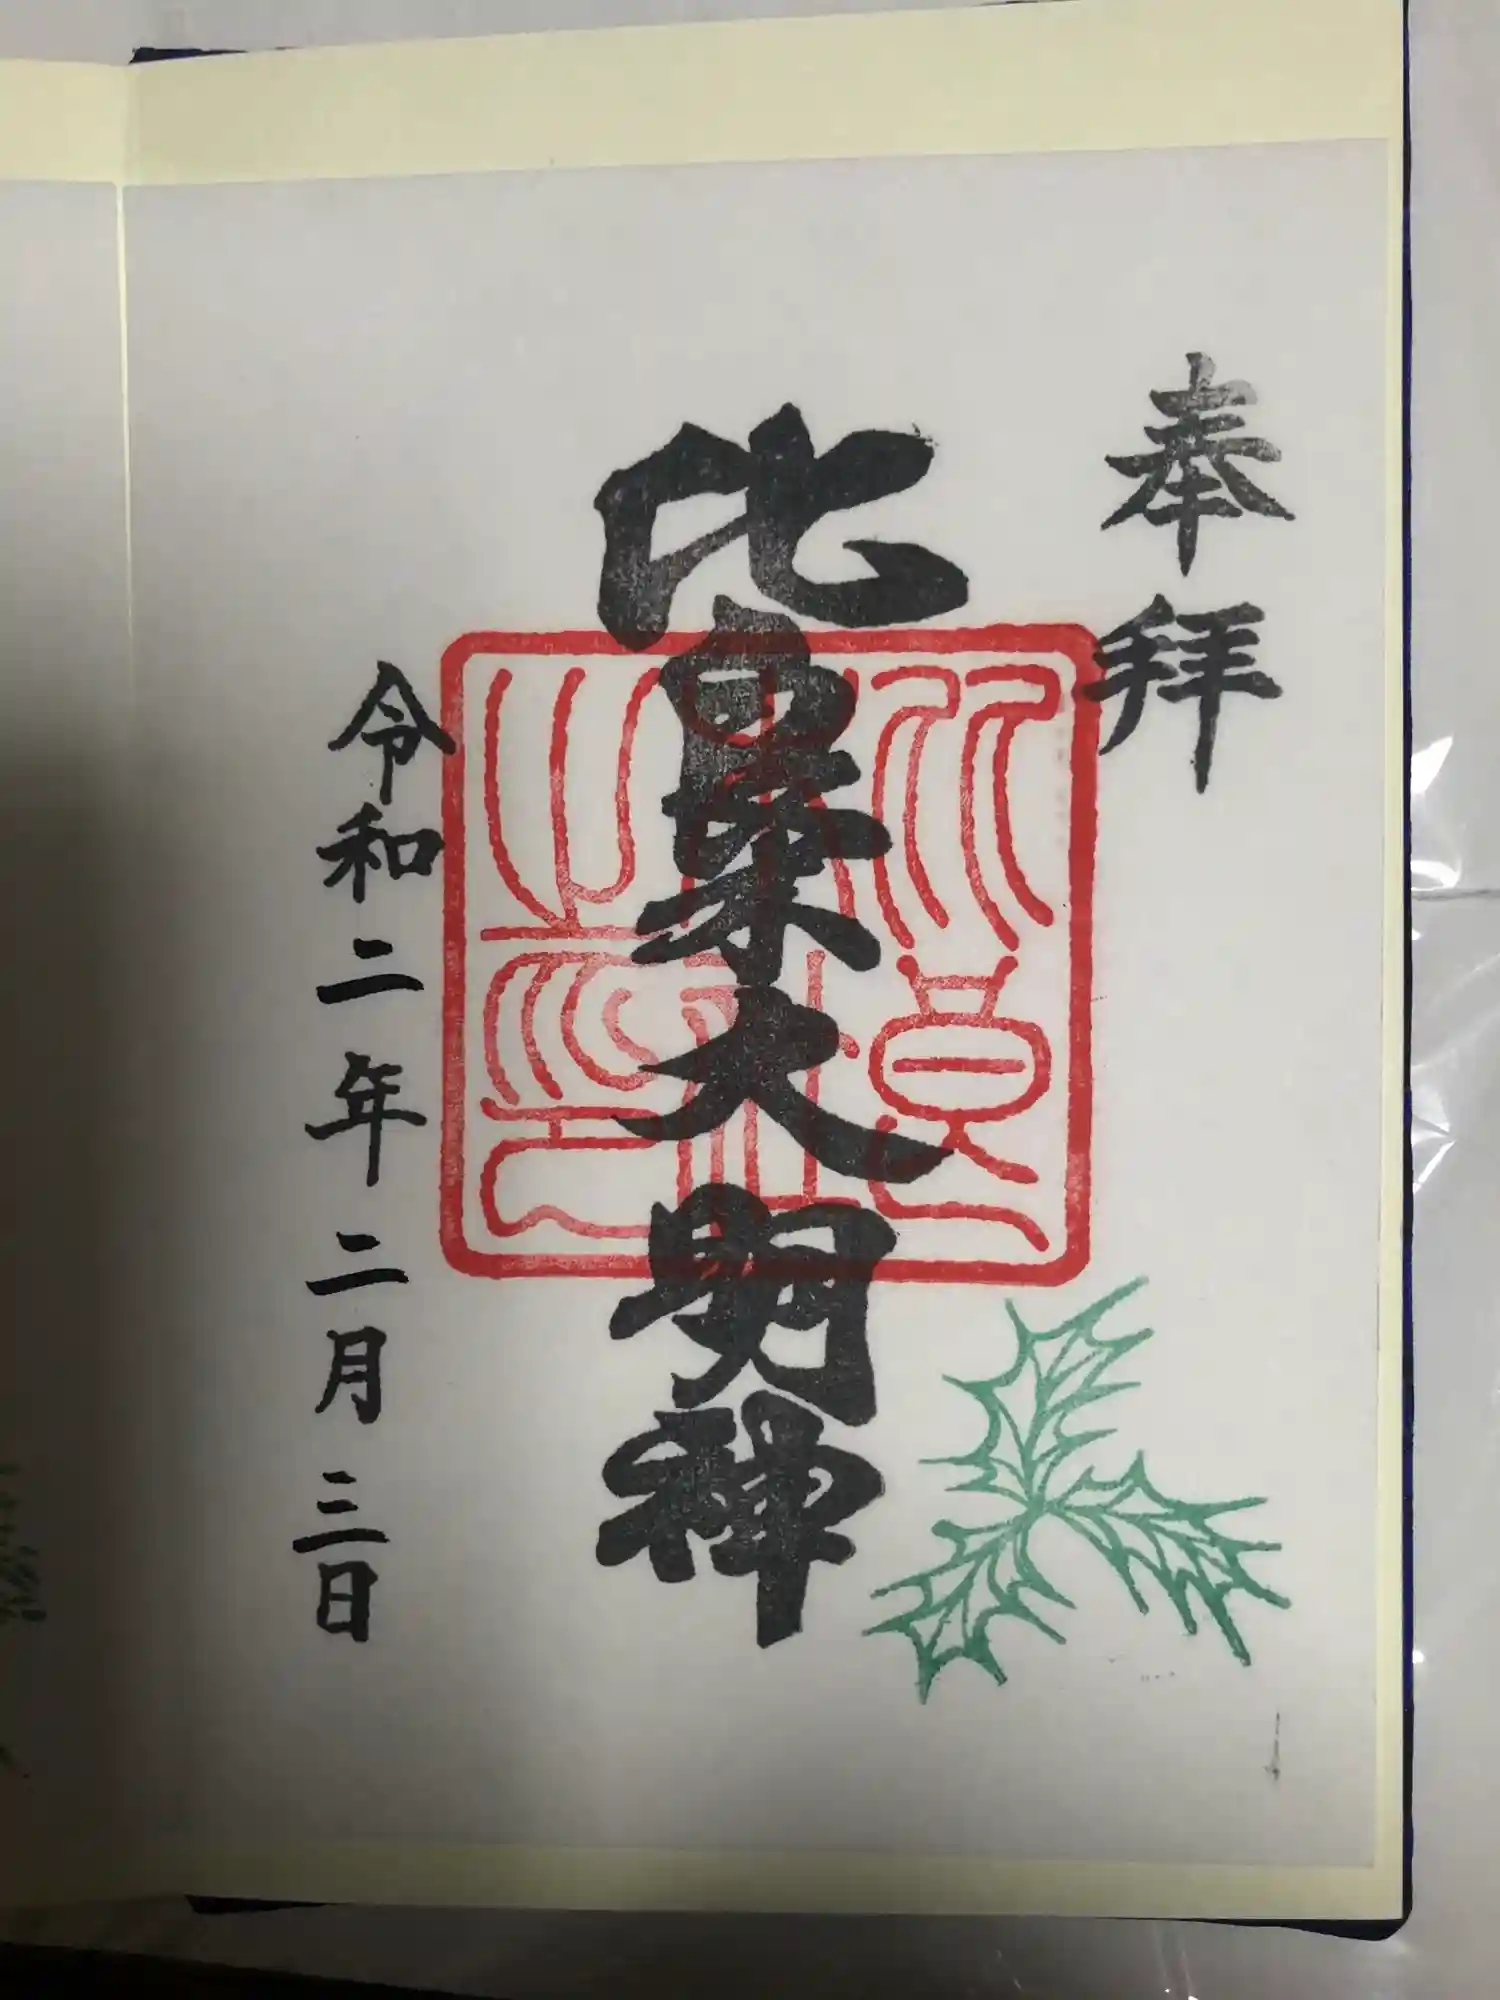 奉拝
比良木大明神
令和二年二月三日